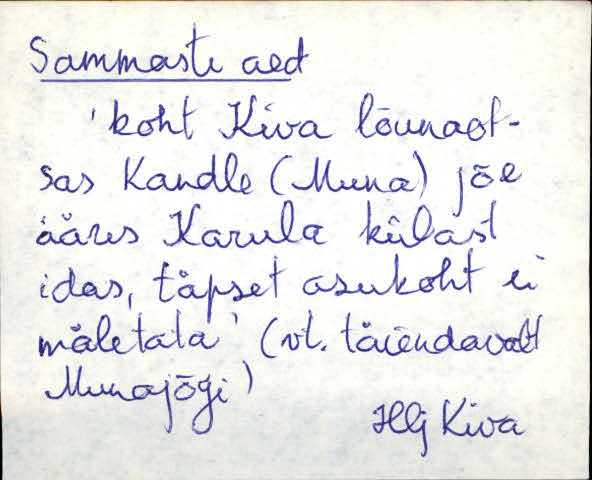 Sammaste aed
'koht Kiva lõunaot-
sas Kandle (Muna) jõe
ääres Karula külast
idas, täpset asukoht ei
mäletata' (vt. täiendavalt
Munajõgi)
Hlj Kiva